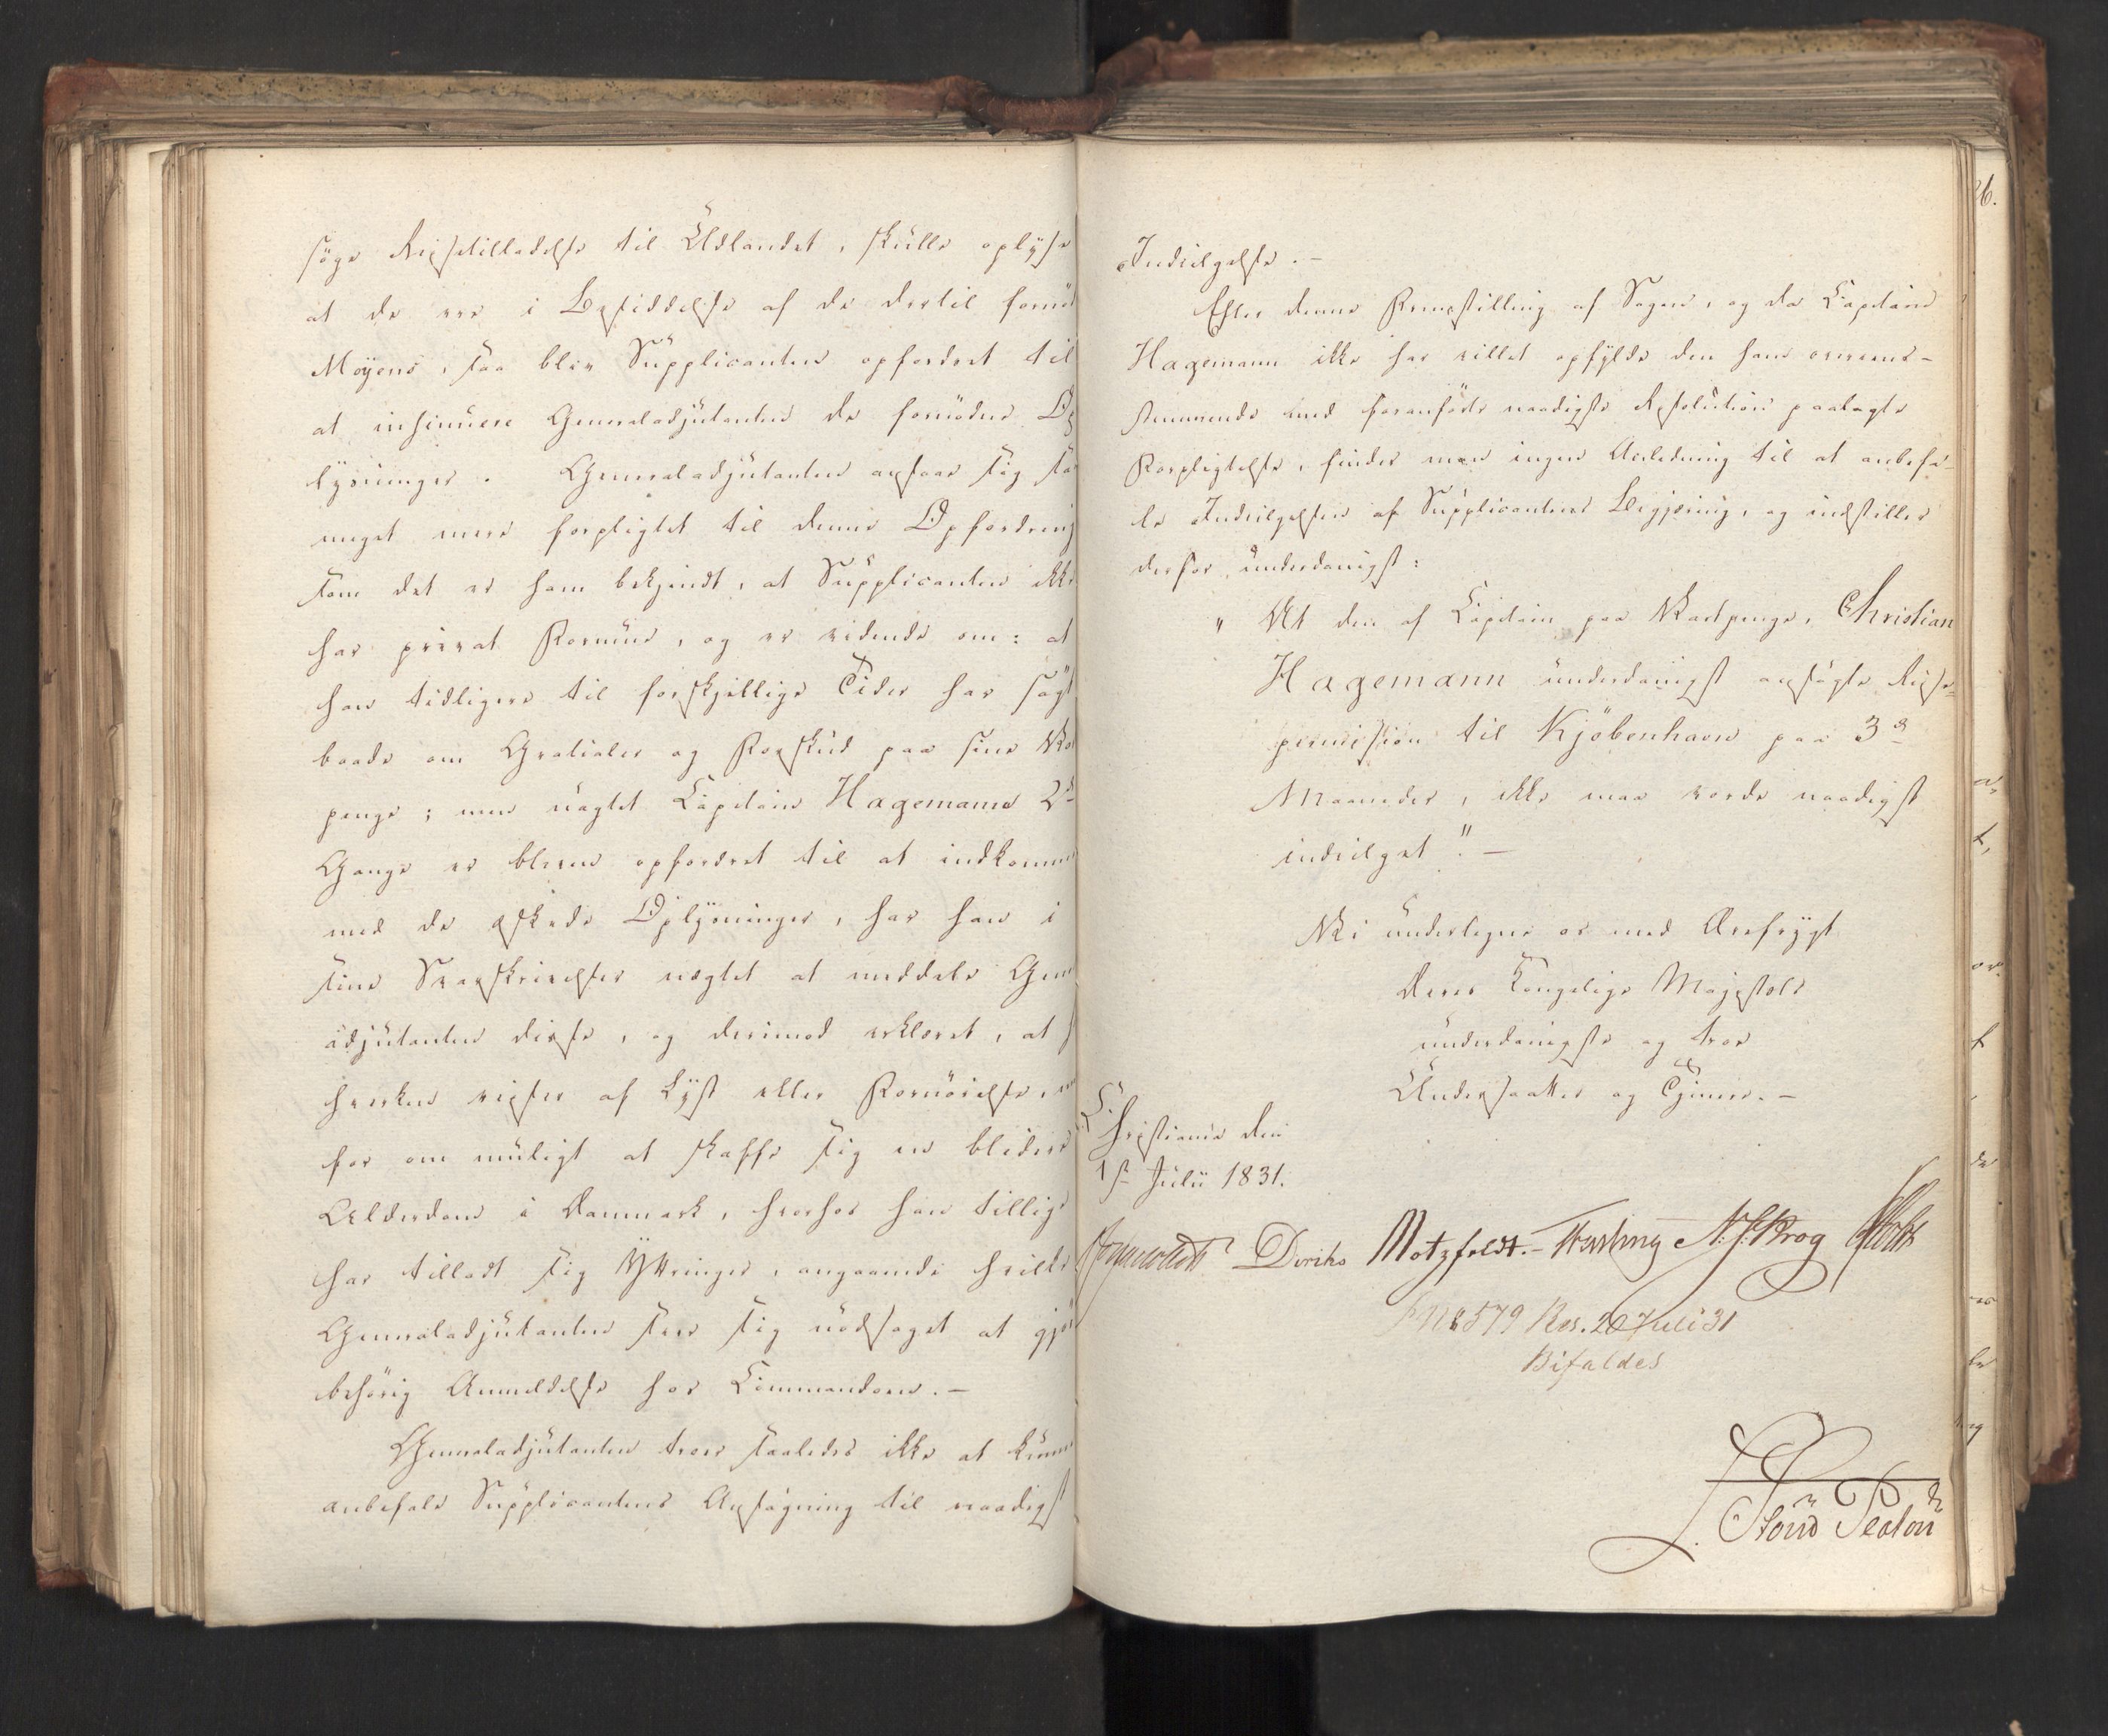 søge Reisetilladelse til Udlandet, skulle oplyse
at de ere i Besiddelse af de dertil fornød
Moyens, saa blev Supplicanten opfordret til
at insinuere Generaladjutanten de fornødne Op
lysninger. Generaladjutanten ansaae sig saa
meget mere forpligtet til denne Opfordring
som det er ham bekjendt, at Supplicanten ikke
har privat Formue, og er vidende om: at
han tidligere til forskjellige Tider har søgt
baade om Gratialer og Forskud paa sine Vart
penge; men uagtet Capitain Hagemann 2de
Gange er bleven opfordret til at indkomme
med de æskede Oplysninger, har han i
sine Svarskrivelser nægtet at meddele Gene
adjutanten disse, og derimod erklæret, at h
hverken reiser af Lyst eller Fornøielse, m
for om muligt at skaffe sig en blidere
Alderdom i Danmark, hvorhos han tillige
har tilladt sig Yttringer, angaaende hvilke
Generaladjutanten seer sig nødsaget at gjør
behørig Anmeldelse hos Commandoen. –
Generaladjutanten troer saaledes ikke at kunne
anbefale Supplicantens Ansøgning til naadigst
Indvilgelse. –
Efter denne Fremstilling af Sagen, og da Capitain
Hagemann ikke har villet opfylde den ham overeens-
stemmende med foranførte naadigste Resolution paalagte
Forpligtelse, finder man ingen Anledning til at anbefa-
le Indvilgelsen af Supplicantens Begjæring, og indstiller
derfor underdanigst:
" At den af Capitain paa Vartpenge, Christian
Hagemann underdanigst ansøgte Reise-
permission til Kjöbenhavn paa 3de
Maaneder, ikke maa vorde naadigst
indvilget". –
Vi underlegne os med Ærefrygt
Deres Kongelige Majestæts
underdanigste og troe
Undersaatter og Tjenere. –
Christiania den
1ste Julii 1831.
Diriks Motzfeldt. – Fasting N. J. Krog Holst
No 579 Res. 20 Juli 31
Bifaldes